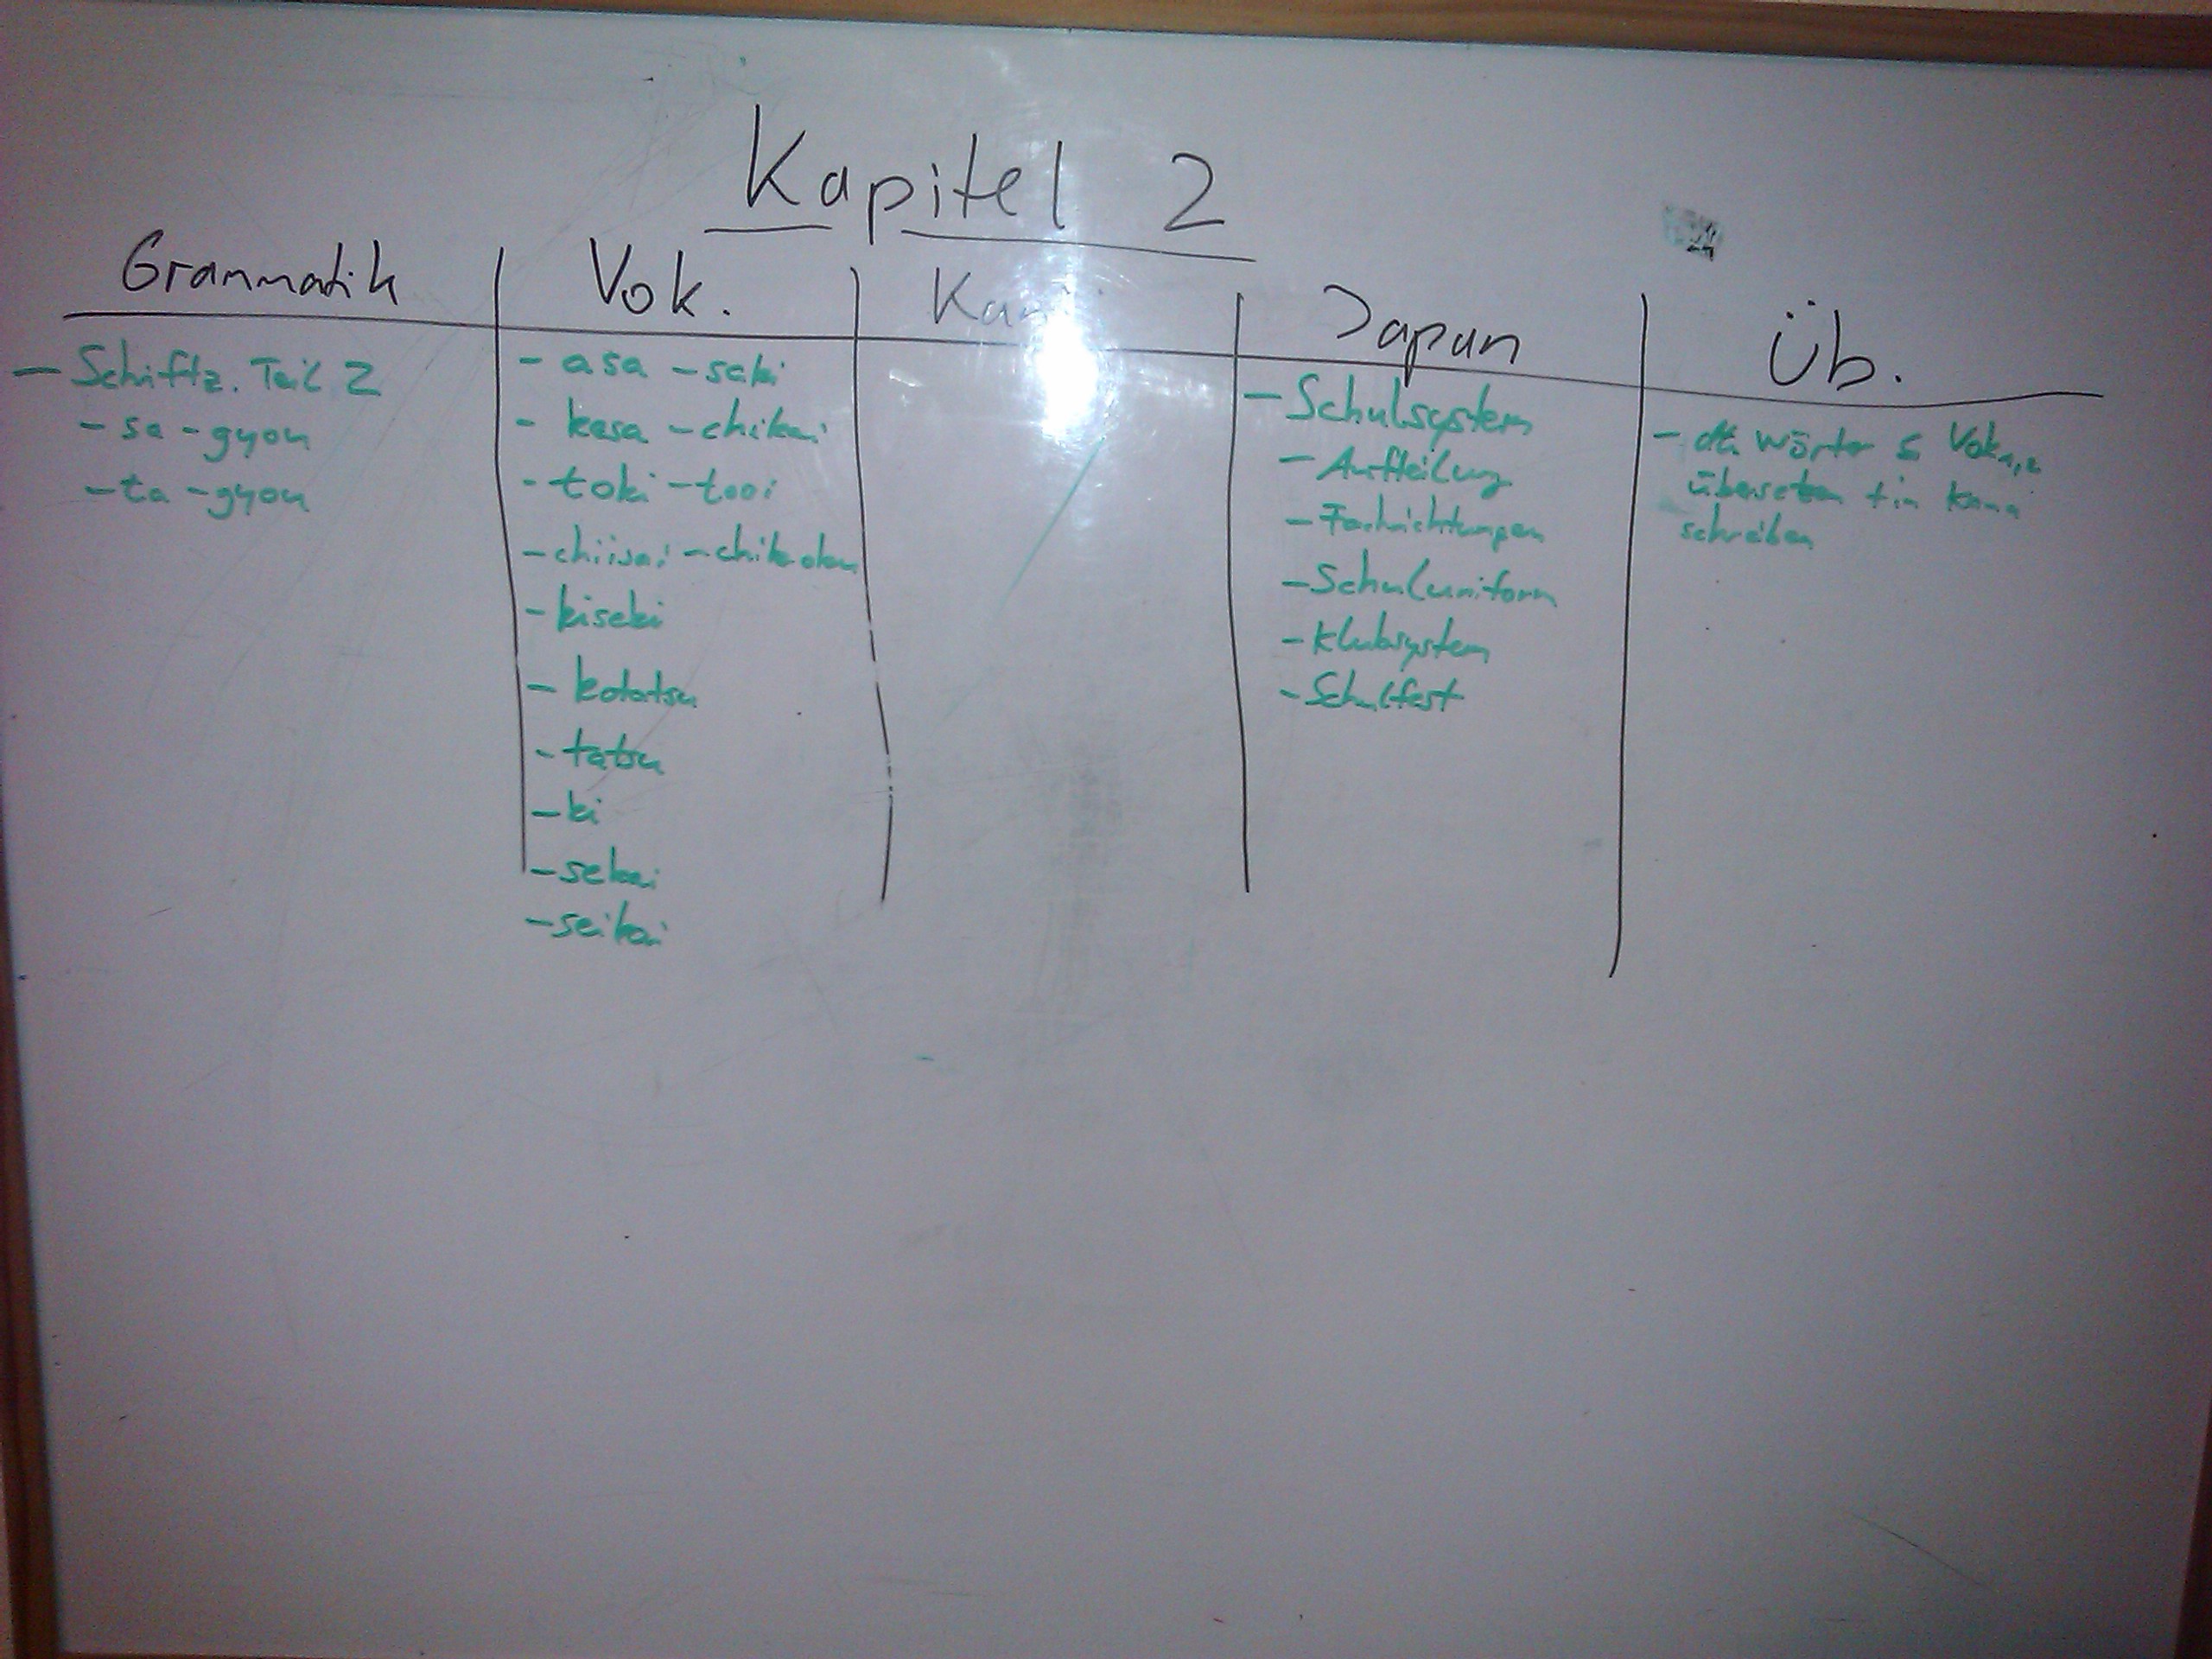 Kapitel 2
Grammatik
- Schriftz. Teil 2
- sa - gyou
- ta - gyou
Vok.
- asa - saki
- kasa - chikai
- toki - tooi
- chiisai - chikatetsu
- kiseki
- kotatsu
- tatsu
- ki
- sekai
- seikai
Japan
- Schulsystem
- Aufteilung
- Fachrichtungen
- Schuluniform
- Klubsystem
- Schulfest
Üb.
- dt. Wörter Vok 1,2
übersetzen + in Kana
schreiben